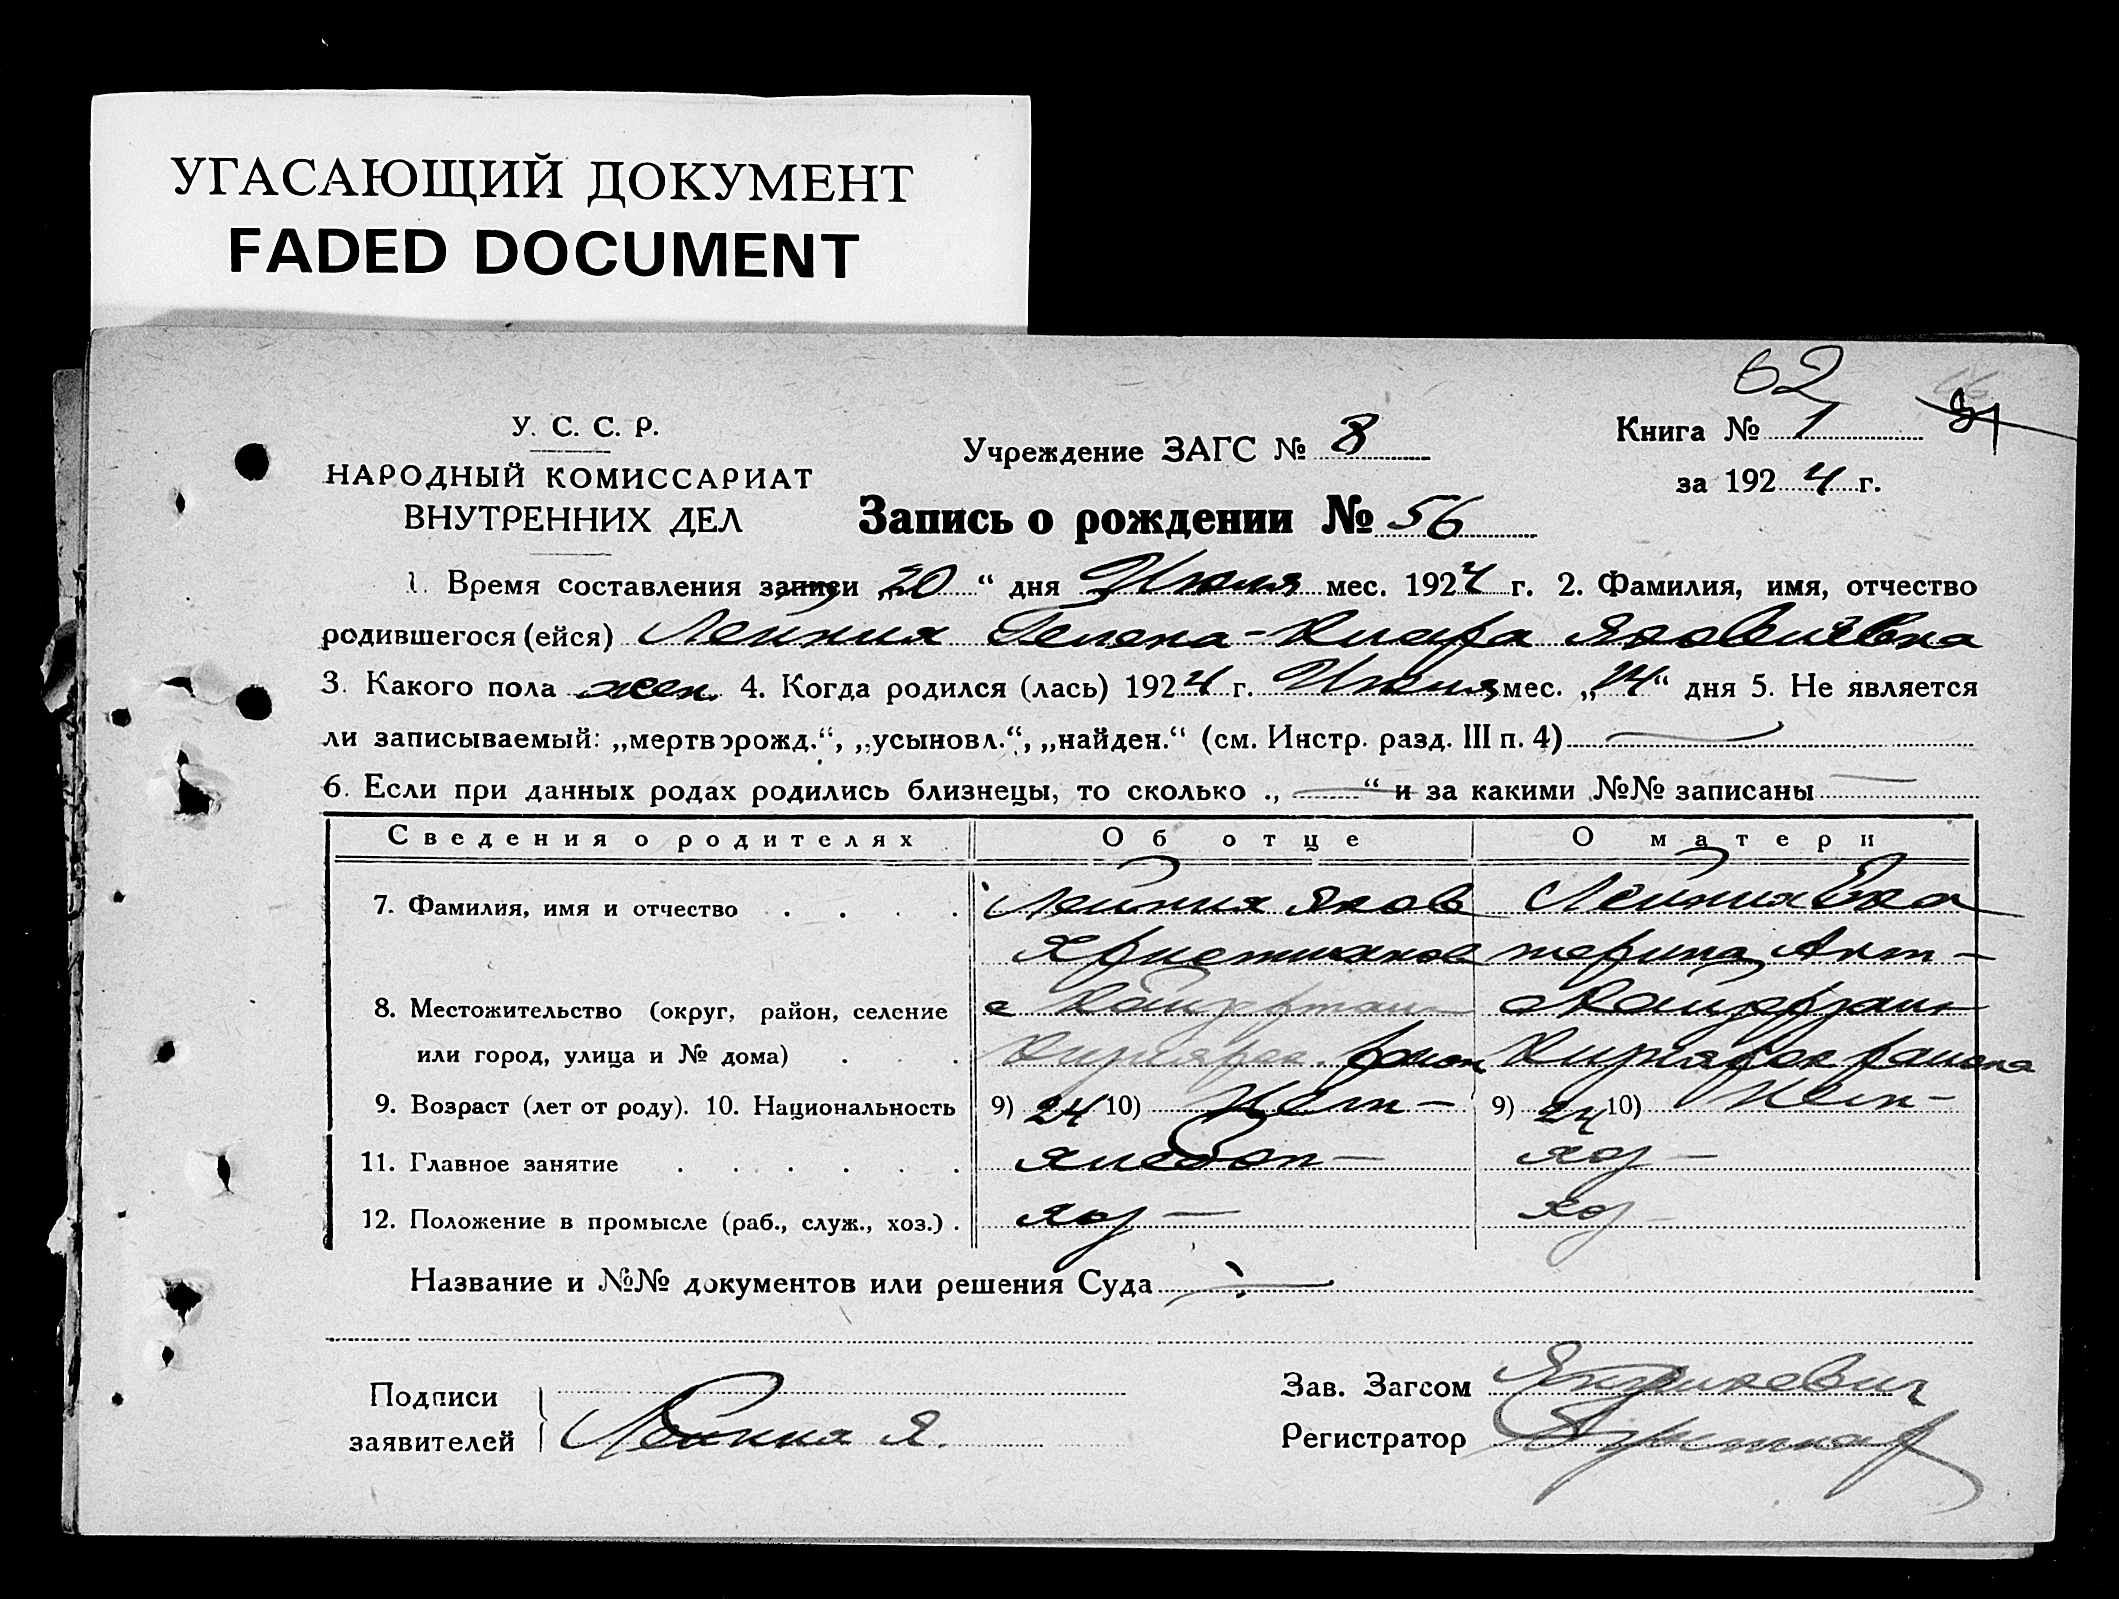 УГАСАЮЩИЙ ДОКУМЕНТ
FADED DOCUMENT
62
У. С. С. Р.
НАРОДНЫЙ КОМИССАРИАТ
ВНУТРЕННИХ ДЕЛ
Учреждение ЗАГС № 8
Книга № 1
за 1924 г.
Запись о рождении № 56
1. Время составления записи „20“ дня Июля мес. 1924 г. 2. Фамилия, имя, отчество
родившегося (ейся) Гелена-Клара Яковлевна
3. Какого пола жен. 4. Когда родился (лась) 1924 г. мес. „14“ дня 5. Не является
ли записываемый: „мертворожд.“, „усыновл.“, „найден.“ (см. Инстр. разд. III п. 4)
6. Если при данных родах родились близнецы, то сколько „ “ и за какими №№ записаны
Сведения о родителях Об отце О матери
7. Фамилия, имя и отчество Яков Ека
Христианов терина Ант-
8. Местожительство (округ, район, селение с
или город, улица и № дома) район района
9. Возраст (лет от роду). 10. Национальность 9) 24 10) Нем- 9) 24 10) Нем-
11. Главное занятие хлебоп- хоз-
12. Положение в промысле (раб., служ., хоз.) хоз- хоз-
Название и №№ документов или решения Суда
Подписи
заявителей Я.
Зав. Загсом
Регистратор